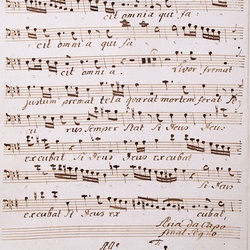 cit omnia qui fa
cit omnia qui fa
cit omnia. livor fremat
justum premat tela quærat mortem ferat
rus semper stat si Deus Deus
excubat si Deus excubat
si Deus
excubat si Deus ex cubat.
Aria da Capo